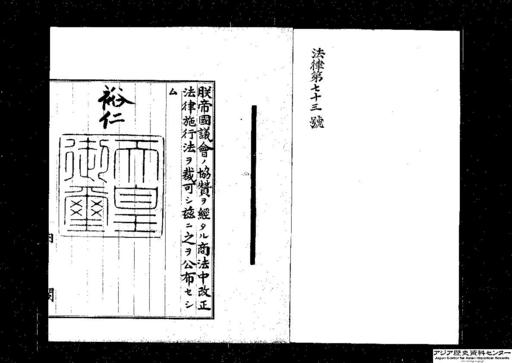 法律第七十三號
朕帝國議會ノ協贊ヲ經タル商法中改正
法律施行法ヲ裁可シ茲ニ之ヲ公布セシ
ム
裕仁
天皇
御璽
内閣
アジア歴史資料センター
Japan Center for Asian Historical Records